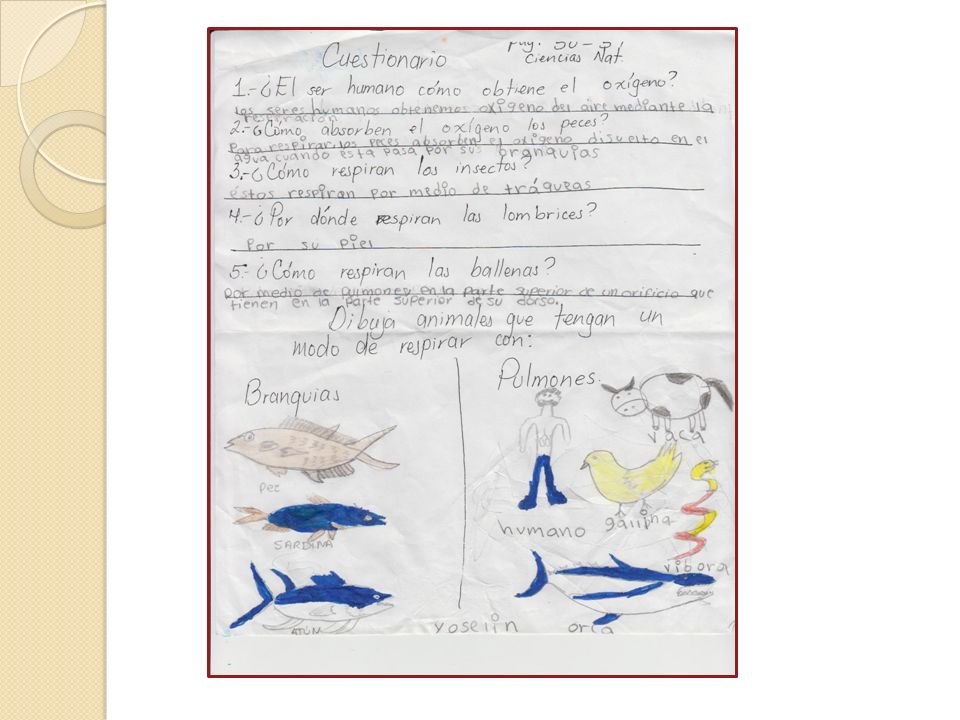 pág. 50-51
Cuestionario
Ciencias Nat.
1.-¿El ser humano cómo obtiene el oxígeno?
los seres humanos obtenemos oxigeno del aire mediante la
respiración
2.-¿Cómo absorben el oxígeno los peces?
Para respirar los peces absorben el oxigeno disuelto en el
agua cuando esta pasa por sus branquias
3.-¿Cómo respiran los insectos?
éstos respiran por medio de tráqueas
4.-¿Por dónde respiran las lombrices?
Por su piel
5.-¿Cómo respiran las ballenas?
por medio de pulmones en la parte superior de un orificio que
tienen en la parte superior de su dorso.
Dibuja animales que tengan un
modo de respirar con:
Branquias
Pulmones.
vaca
pez
humano
gallina
SARDINA
vibora
ATÚN
yoselin
orca